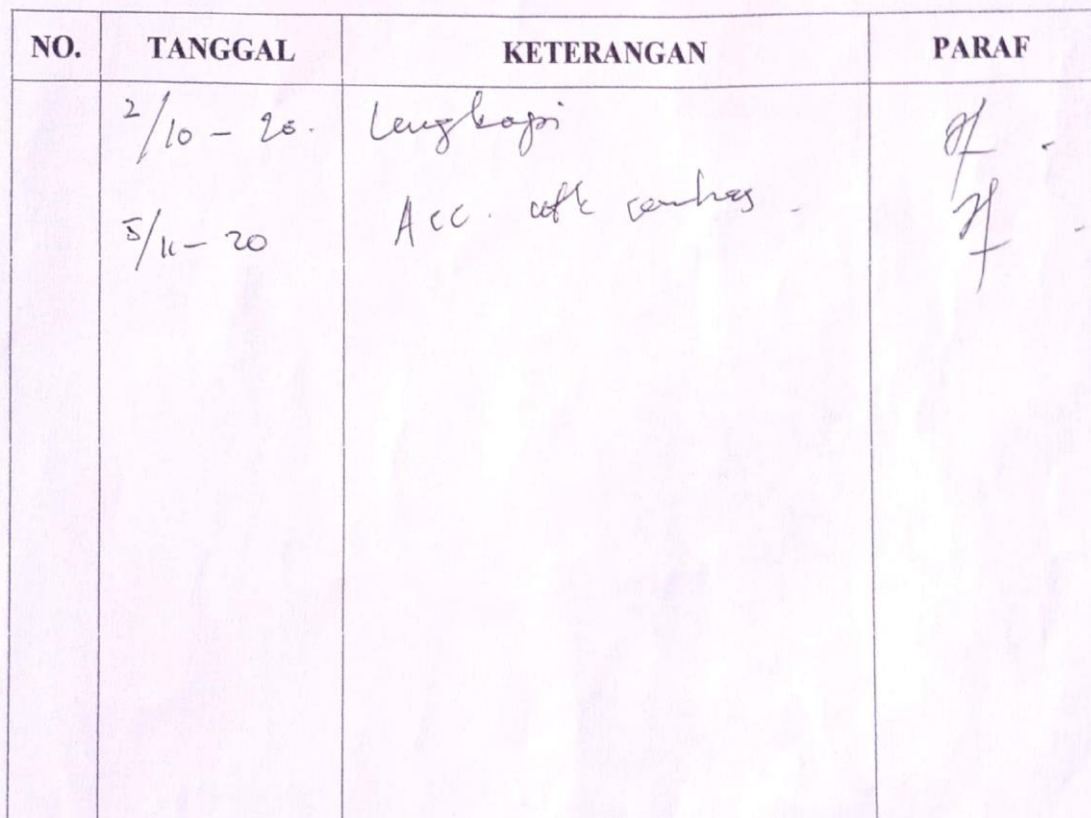 NO. TANGGAL KETERANGAN PARAF
2/10 - 20. Lengkapi
5/11 - 20 Acc. utk